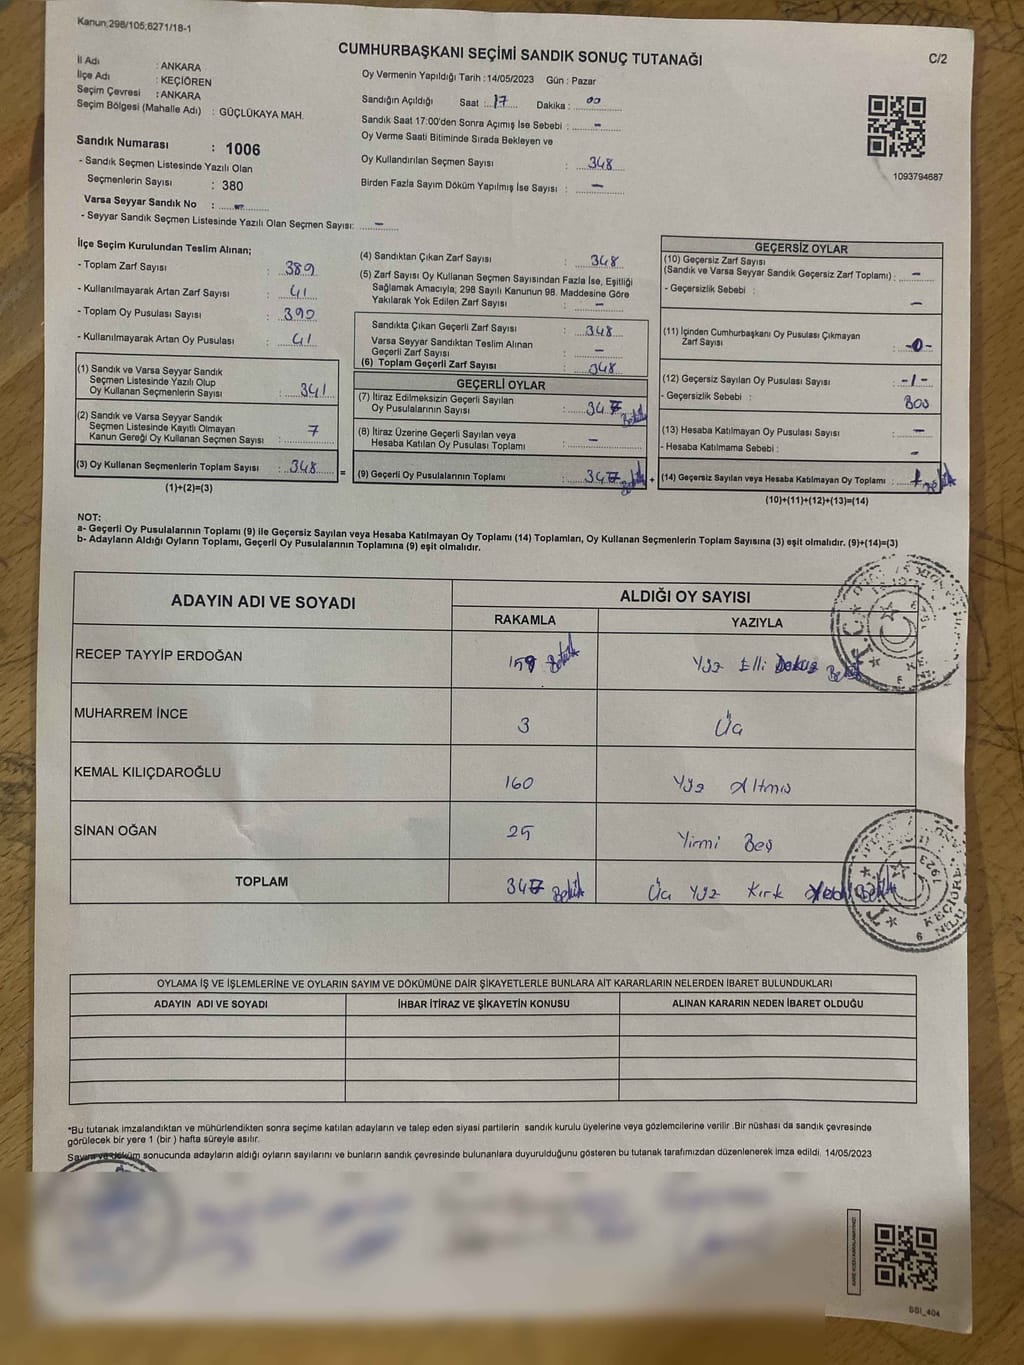 Kanun;298/105;6271/18-1
CUMHURBAŞKANI SEÇİMİ SANDIK SONUÇ TUTANAĞI
C/2
İl Adı : ANKARA
İlçe Adı : KEÇİÖREN
Seçim Çevresi : ANKARA
Seçim Bölgesi (Mahalle Adı) : GÜÇLÜKAYA MAH.
Sandık Numarası : 1006
- Sandık Seçmen Listesinde Yazılı Olan
Seçmenlerin Sayısı : 380
Varsa Seyyar Sandık No : -
- Seyyar Sandık Seçmen Listesinde Yazılı Olan Seçmen Sayısı: -
Oy Vermenin Yapıldığı Tarih :14/05/2023 Gün : Pazar
Sandığın Açıldığı Saat : 17 Dakika : 00
Sandık Saat 17:00'den Sonra Açımış İse Sebebi : -
Oy Verme Saati Bitiminde Sırada Bekleyen ve
Oy Kullandırılan Seçmen Sayısı : 348
Birden Fazla Sayım Döküm Yapılmış İse Sayısı : -
1093794687
İlçe Seçim Kurulundan Teslim Alınan;
- Toplam Zarf Sayısı : 389
- Kullanılmayarak Artan Zarf Sayısı : 41
- Toplam Oy Pusulası Sayısı : 390
- Kullanılmayarak Artan Oy Pusulası : 41
(1) Sandık ve Varsa Seyyar Sandık
Seçmen Listesinde Yazılı Olup
Oy Kullanan Seçmenlerin Sayısı : 341
(2) Sandık ve Varsa Seyyar Sandık
Seçmen Listesinde Kayıtlı Olmayan
Kanun Gereği Oy Kullanan Seçmen Sayısı : 7
(3) Oy Kullanan Seçmenlerin Toplam Sayısı : 348 =
(1)+(2)=(3)
(4) Sandıktan Çıkan Zarf Sayısı : 348
(5) Zarf Sayısı Oy Kullanan Seçmen Sayısından Fazla İse, Eşitliği
Sağlamak Amacıyla; 298 Sayılı Kanunun 98. Maddesine Göre
Yakılarak Yok Edilen Zarf Sayısı : -
Sandıkta Çıkan Geçerli Zarf Sayısı : 348
Varsa Seyyar Sandıktan Teslim Alınan
Geçerli Zarf Sayısı : -
(6) Toplam Geçerli Zarf Sayısı : 348
GEÇERLİ OYLAR
(7) İtiraz Edilmeksizin Geçerli Sayılan
Oy Pusulalarının Sayısı : 347
(8) İtiraz Üzerine Geçerli Sayılan veya
Hesaba Katılan Oy Pusulası Toplamı : -
(9) Geçerli Oy Pusulalarının Toplamı : 347 +
GEÇERSİZ OYLAR
(10) Geçersiz Zarf Sayısı
(Sandık ve Varsa Seyyar Sandık Geçersiz Zarf Toplamı) : -
- Geçersizlik Sebebi : -
(11) İçinden Cumhurbaşkanı Oy Pusulası Çıkmayan
Zarf Sayısı : -0-
(12) Geçersiz Sayılan Oy Pusulası Sayısı : -1-
- Geçersizlik Sebebi :
(13) Hesaba Katılmayan Oy Pusulası Sayısı : -
- Hesaba Katılmama Sebebi : -
(14) Geçersiz Sayılan veya Hesaba Katılmayan Oy Toplamı : 1
(10)+(11)+(12)+(13)=(14)
NOT:
a- Geçerli Oy Pusulalarının Toplamı (9) ile Geçersiz Sayılan veya Hesaba Katılmayan Oy Toplamı (14) Toplamları, Oy Kullanan Seçmenlerin Toplam Sayısına (3) eşit olmalıdır. (9)+(14)=(3)
b- Adayların Aldığı Oyların Toplamı, Geçerli Oy Pusulalarının Toplamına (9) eşit olmalıdır.
ADAYIN ADI VE SOYADI
ALDIĞI OY SAYISI
RAKAMLA YAZIYLA
RECEP TAYYİP ERDOĞAN 159 Yüz Elli Dokuz
MUHARREM İNCE 3 Üç
KEMAL KILIÇDAROĞLU 160 Yüz Altmış
SİNAN OĞAN 25 Yirmi Beş
TOPLAM 347 Üç Yüz Kırk Yedi
OYLAMA İŞ VE İŞLEMLERİNE VE OYLARIN SAYIM VE DÖKÜMÜNE DAİR ŞİKAYETLERLE BUNLARA AİT KARARLARIN NELERDEN İBARET BULUNDUKLARI
ADAYIN ADI VE SOYADI İHBAR İTİRAZ VE ŞİKAYETİN KONUSU ALINAN KARARIN NEDEN İBARET OLDUĞU
*Bu tutanak imzalandıktan ve mühürlendikten sonra seçime katılan adayların ve talep eden siyasi partilerin sandık kurulu üyelerine veya gözlemcilerine verilir .Bir nüshası da sandık çevresinde
görülecek bir yere 1 (bir ) hafta süreyle asılır.
Sayım ve döküm sonucunda adayların aldığı oyların sayılarını ve bunların sandık çevresinde bulunanlara duyurulduğunu gösteren bu tutanak tarafımızdan düzenlenerek imza edildi. 14/05/2023
SSI_404